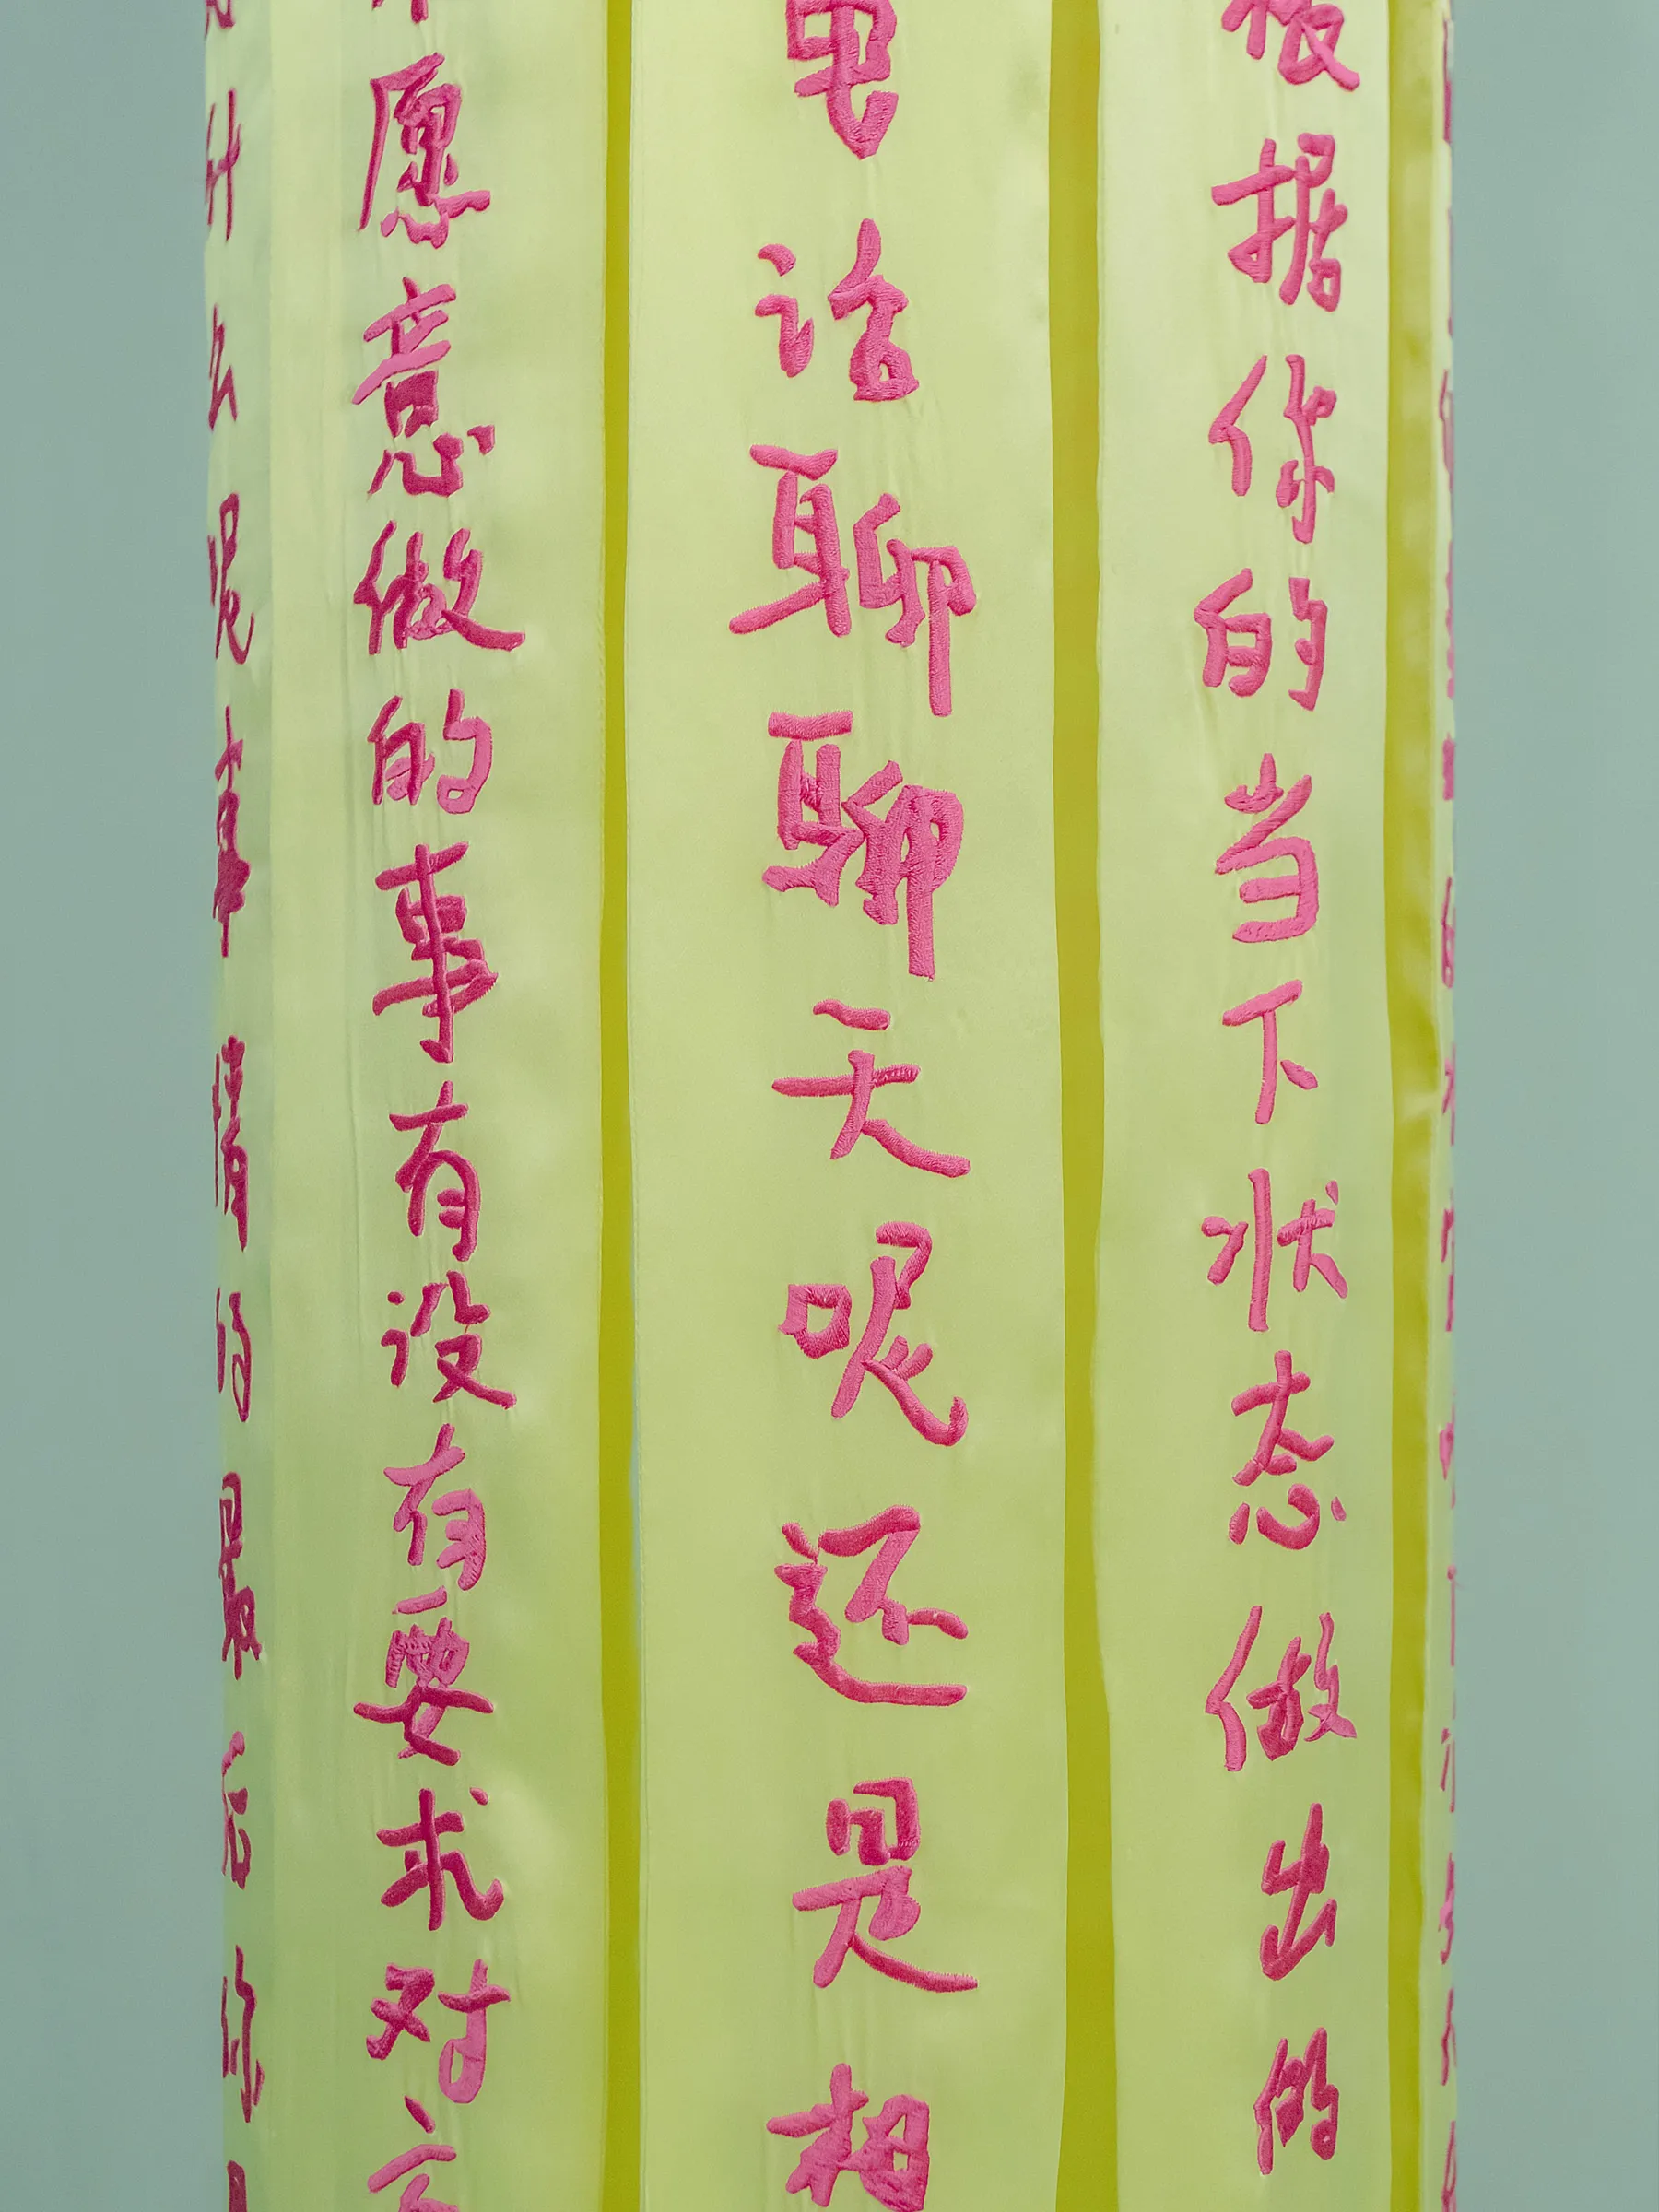 根据你的当下状态做出的
电话聊聊天呢还是相
愿意做的事有没有要求对
什么呢事情的最后你